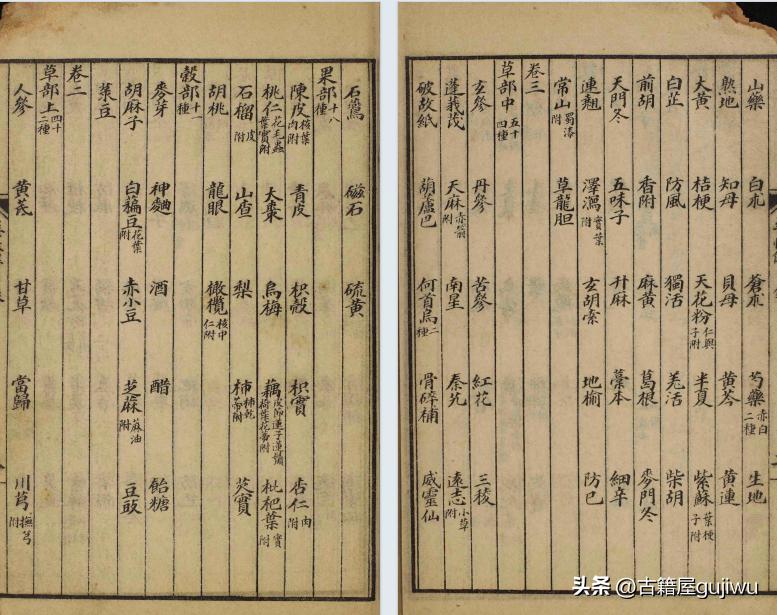 石鷰 磁石 硫黃
果部十八種
陳皮核葉肉附 青皮 枳殼 枳實 杏仁肉附
桃仁花毛蟲葉實附 大棗 烏梅 藕皮節蓮子蓮鬚荷葉花蒂附 枇杷葉實附
石榴皮附 山查 梨 柿柿乾蒂附 芡實
胡桃 龍眼 橄欖核中仁附
穀部十一種
麥芽 神麯 酒 醋 飴糖
胡麻子 白藊豆花葉附 赤小豆 芝蔴蔴油附 豆豉
菉豆
卷二
草部上四十二種
人參 黃芪 甘草 當歸 川芎撫芎附
山藥 白朮 蒼朮 芍藥赤白二種 生地
熟地 知母 貝母 黃芩 黃連
大黃 桔梗 天花粉仁與子附 半夏 紫蘇葉梗子附
白芷 防風 獨活 羌活 柴胡
前胡 香附 麻黃 葛根 麥門冬
天門冬 五味子 升麻 藁本 細辛
連翹 澤瀉實葉附 玄胡索 地榆 防已
常山蜀漆附 草龍胆
卷三
草部中五十四種
玄參 丹參 苦參 紅花 三稜
蓬莪茂 天麻赤箭附 南星 秦艽 遠志小草附
破故紙 葫蘆巴 何首烏二種 骨碎補 威靈仙
头条 @古籍屋gujiwu